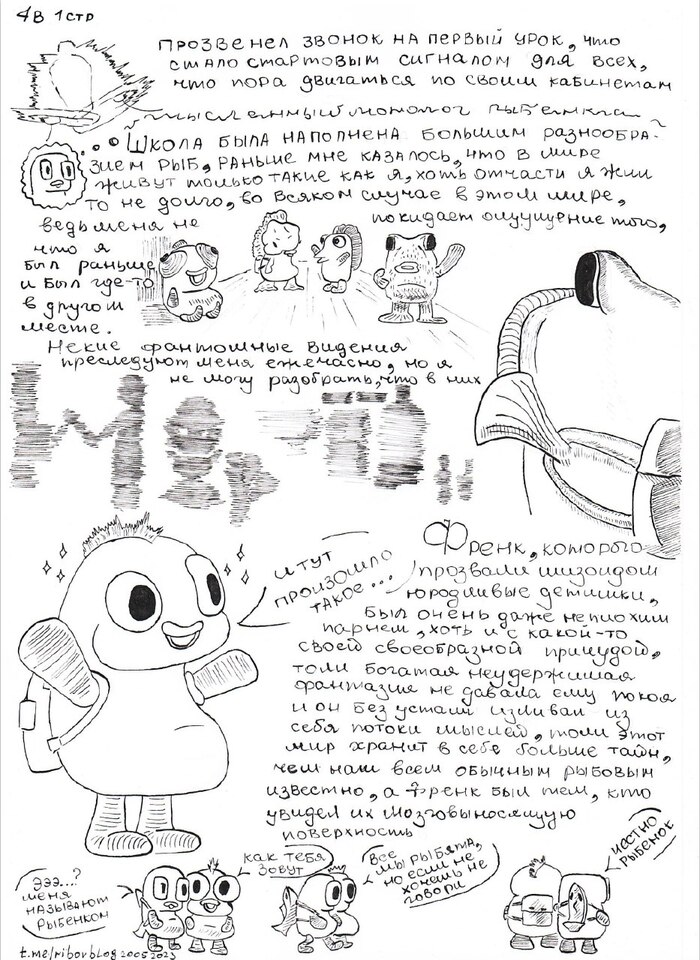 4В 1 СТР
ПРОЗВЕНЕЛ ЗВОНОК НА ПЕРВЫЙ УРОК, ЧТО
СТАЛО СТАРТОВЫМ СИГНАЛОМ ДЛЯ ВСЕХ,
ЧТО ПОРА ДВИГАТЬСЯ ПО СВОИМ КАБИНЕТАМ
МЫСЛЕННЫЙ МОНОЛОГ РЫБЕНКА
ШКОЛА БЫЛА НАПОЛНЕНА БОЛЬШИМ РАЗНООБРА-
ЗИЕМ РЫБ, РАНЬШЕ МНЕ КАЗАЛОСЬ, ЧТО В МИРЕ
ЖИВУТ ТОЛЬКО ТАКИЕ КАК Я, ХОТЬ ОТЧАСТИ Я ЖИЛ
ТО НЕ ДОЛГО, ВО ВСЯКОМ СЛУЧАЕ В ЭТОМ МИРЕ,
ВЕДЬ МЕНЯ НЕ ПОКИДАЕТ ОЩУЩЕНИЕ ТОГО,
ЧТО Я
БЫЛ РАНЬШЕ
И БЫЛ ГДЕ-ТО
В ДРУГОМ
МЕСТЕ.
НЕКИЕ ФАНТОМНЫЕ ВИДЕНИЯ
ПРЕСЛЕДУЮТ МЕНЯ ЕЖЕЧАСНО, НО Я
НЕ МОГУ РАЗОБРАТЬ, ЧТО В НИХ
И ТУТ
ПРОИЗОШЛО
ТАКОЕ...
ФРЕНК, КОТОРОГО
ПРОЗВАЛИ ШИЗОИДОМ
ЮРОДЛИВЫЕ ДЕТИШКИ,
БЫЛ ОЧЕНЬ ДАЖЕ НЕПЛОХИМ
ПАРНЕМ, ХОТЬ И С КАКОЙ-ТО
СВОЕЙ СВОЕОБРАЗНОЙ ПРИЧУДОЙ,
ТОЛИ БОГАТАЯ НЕУДЕРЖИМАЯ
ФАНТАЗИЯ НЕ ДАВАЛА ЕМУ ПОКОЯ
И ОН БЕЗ УСТАЛИ ИЗЛИВАЛ ИЗ
СЕБЯ ПОТОКИ МЫСЛЕЙ, ТОЛИ ЭТОТ
МИР ХРАНИТ В СЕБЕ БОЛЬШЕ ТАЙН,
ЧЕМ НАМ ВСЕМ ОБЫЧНЫМ РЫБОВЫМ
ИЗВЕСТНО, А ФРЕНК БЫЛ ТЕМ, КТО
УВИДЕЛ ИХ МОЗГОВЫНОСЯЩУЮ
ПОВЕРХНОСТЬ
ЭЭЭ...?
МЕНЯ
НАЗЫВАЮТ
РЫБЕНКОМ
КАК ТЕБЯ
ЗОВУТ
ВСЕ
МЫ РЫБЯТА,
НО ЕСЛИ НЕ
ХОЧЕШЬ НЕ
ГОВОРИ
ЧЕСТНО
РЫБЕНОК
t.me/ribovblog 20052023